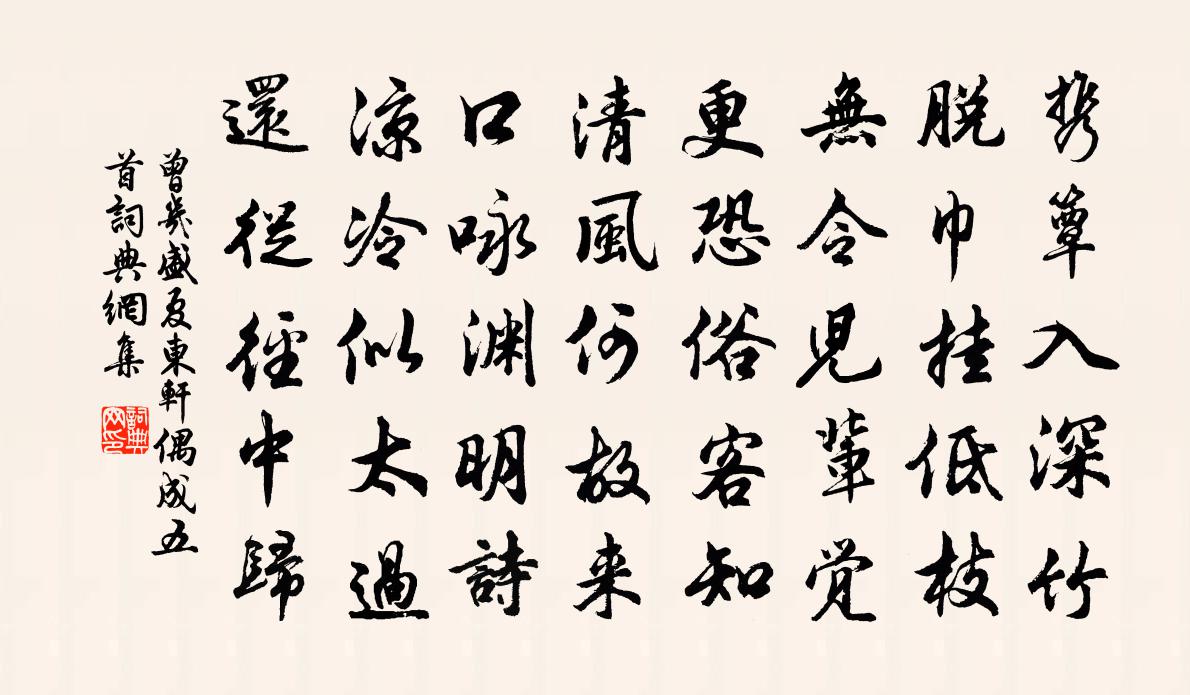 携簟入深竹
脱巾挂低枝
無令児輩覚
更恐俗客知
清風何故来
口咏渊明詩
凉冷似太過
還從徑中歸
曾幾盛夏東軒偶成五
首詞典網集
詞典
网印